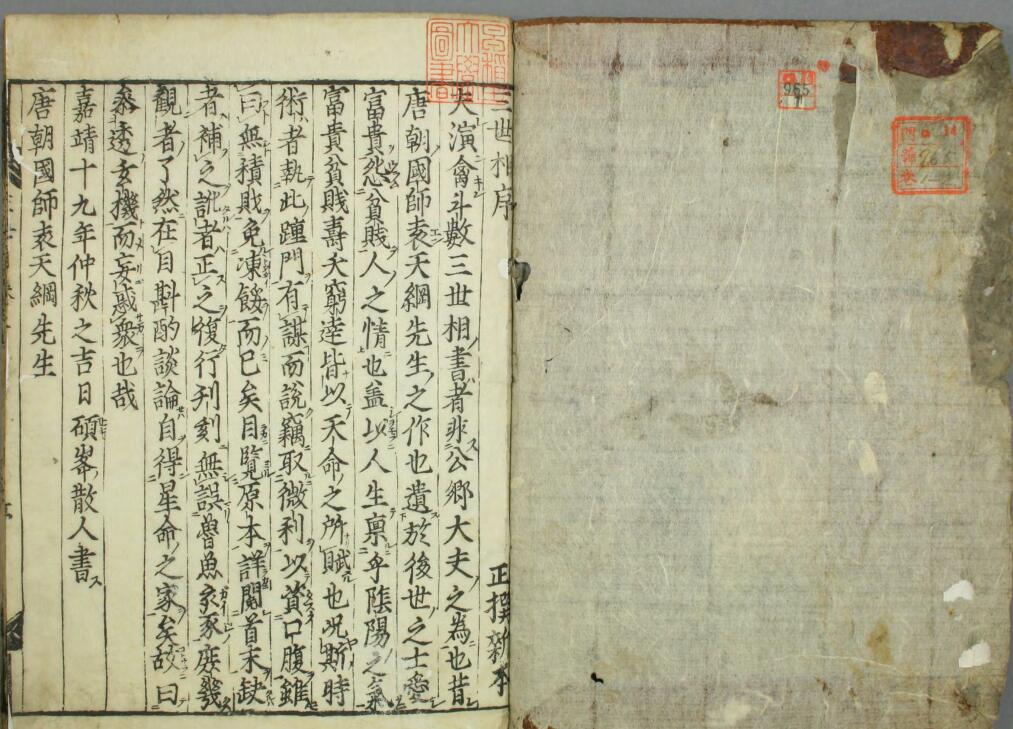 三世相序
正撰新本
夫演禽斗數三世相書者非公鄉大夫之為也昔
唐朝國師袁天綱先生之作也遺於後世之士愛
富貴怨貧賤人之情也盖以人生禀乎陰陽之氣
富貴貧賤壽夭窮達皆以天命之所賦也况斯時
術者執此踵門有謀而說竊取微利以資口腹雖
曰無積賍免凍餒而已矣目覽原本詳閱首末缺
者補之訛者正之復行刋刻無誤魯魚亥豕庻幾
觀者了然在目斟酌談論自得星命之家矣故曰
叅透玄機而妄惑衆也哉
嘉靖十九年仲秋之吉日碩峯散人書
唐朝國師袁天綱先生
圖書
965
1